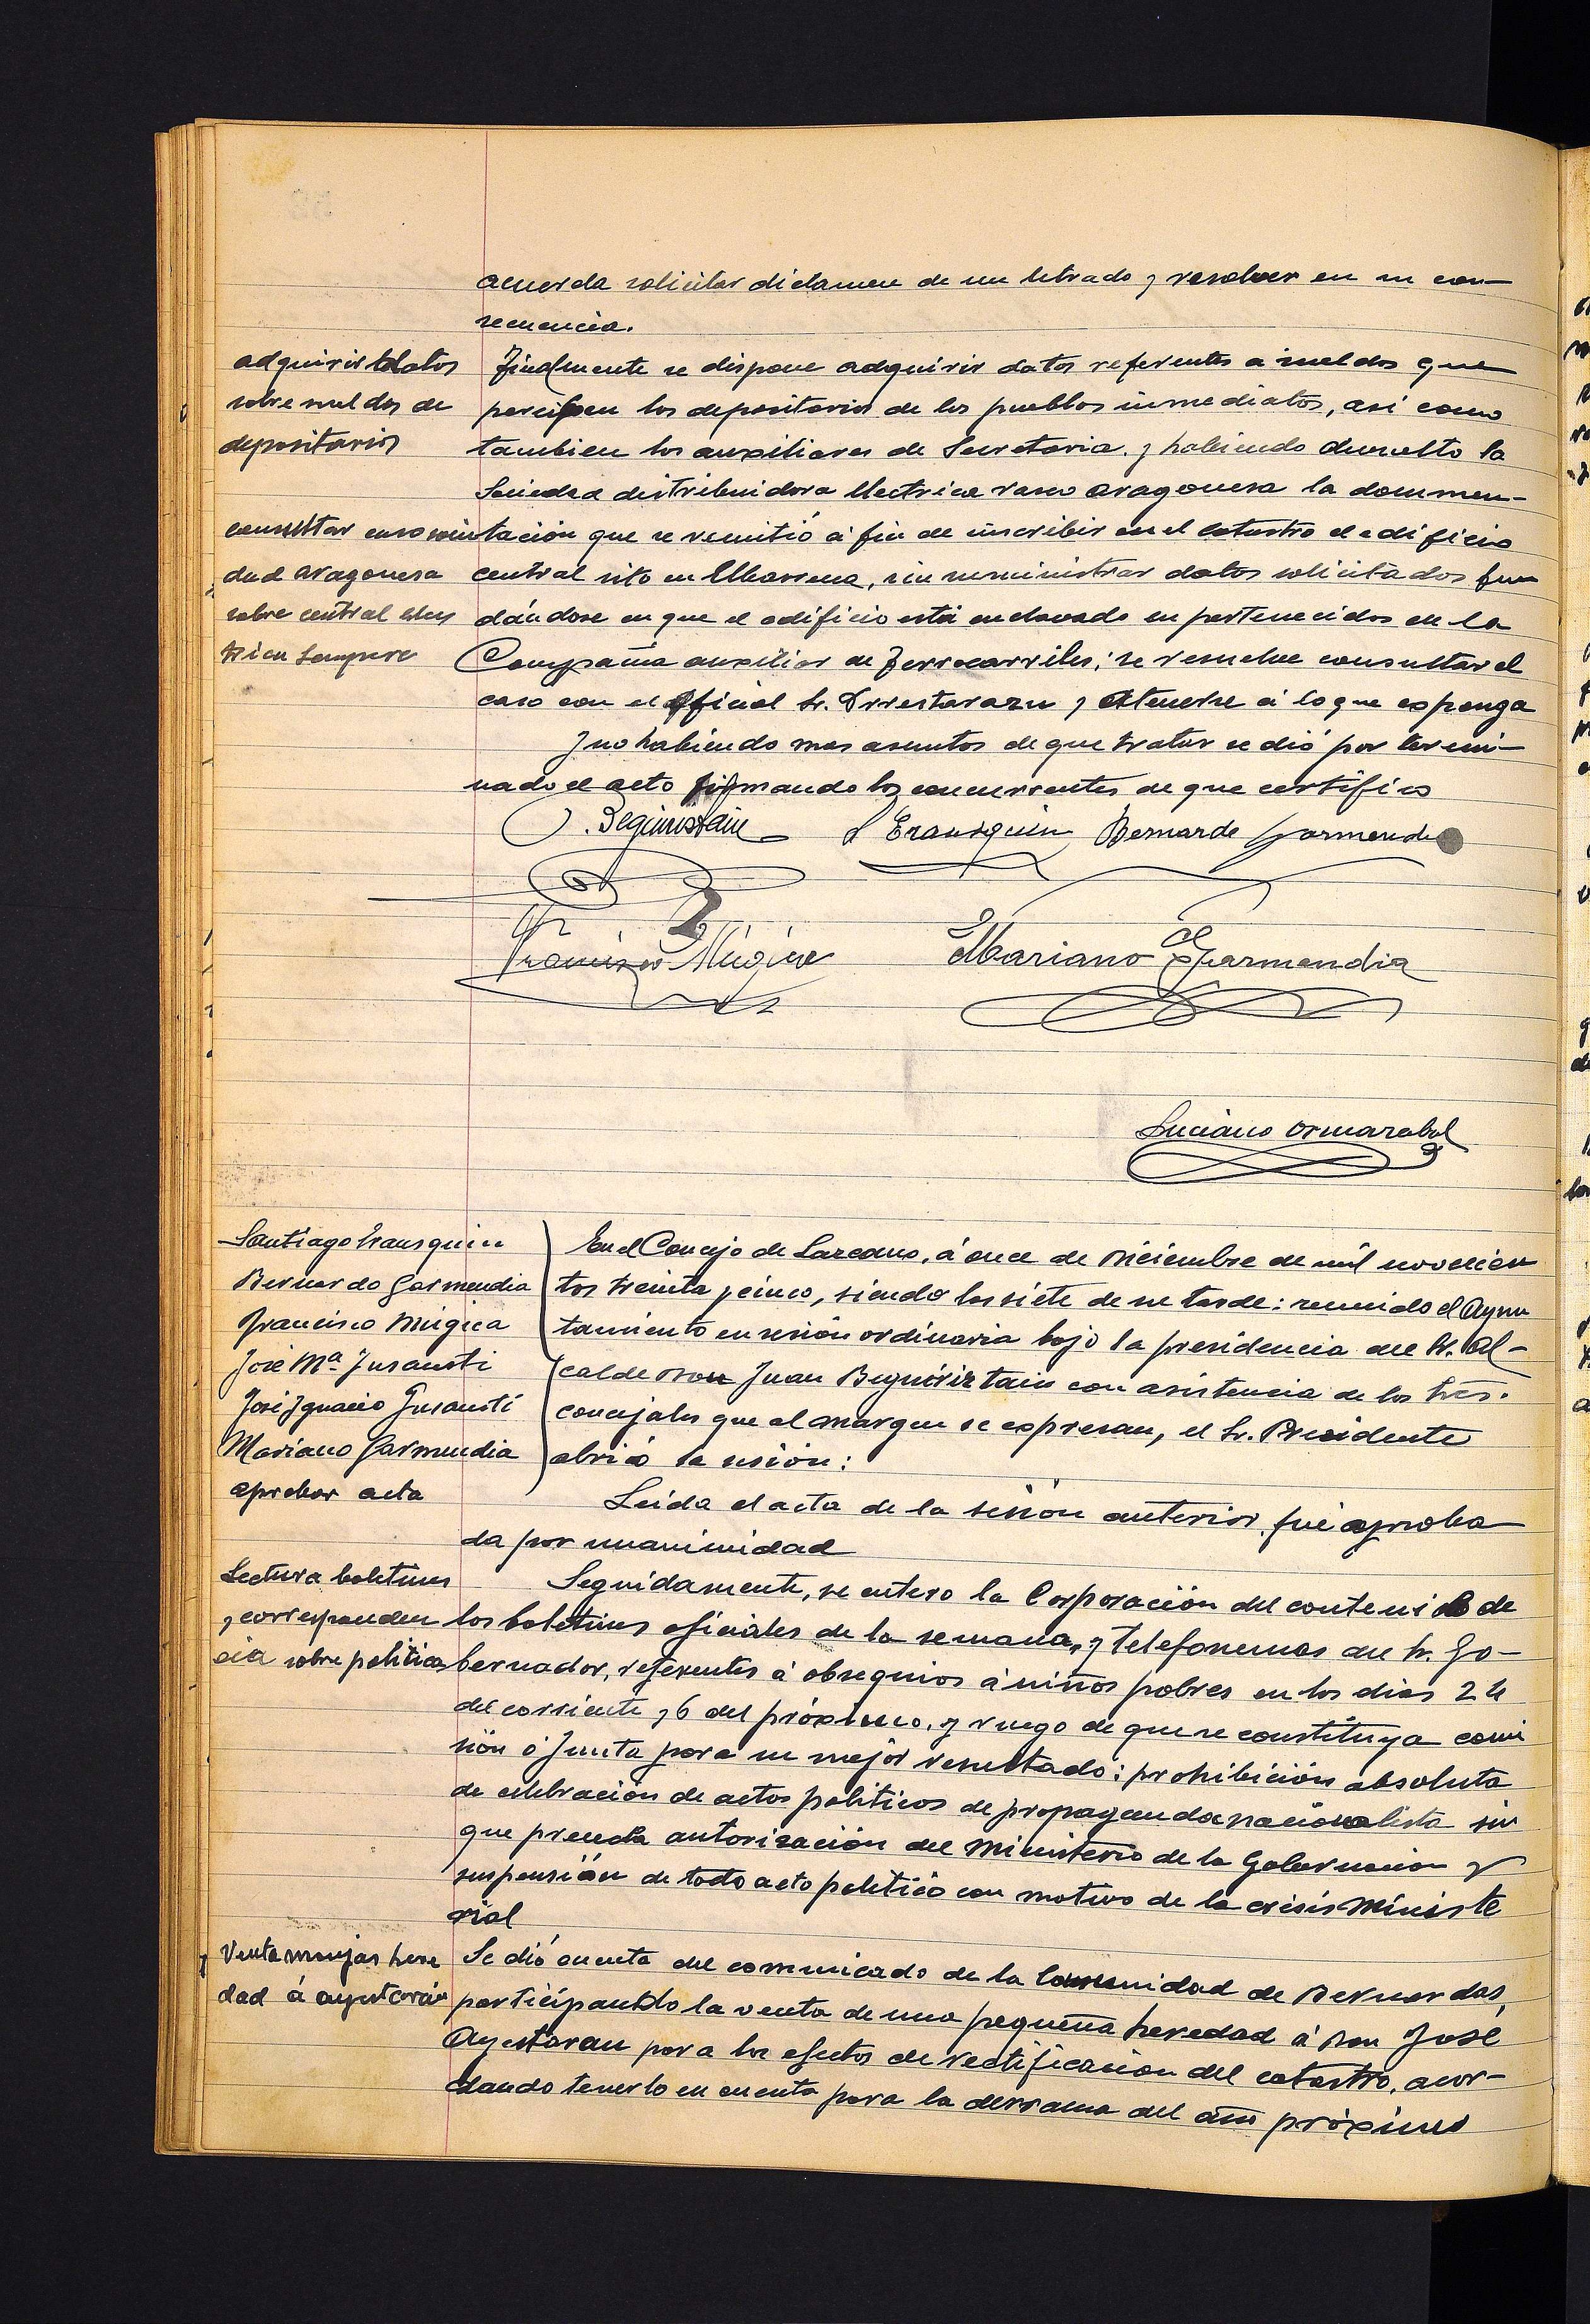 acuerda solicitar dictamen de un letrado y resolver en su con-
secuencia.
adquirir datos
sobre sueldos de
depositarios
Finalmente se dispone adquirir datos referentes a sueldos que
perciben los depositarios de los pueblos inmediatos, así como
tambien los auxiliares de Secretaria. y habiendo devuelto la
Sociedad distribuidora Electrica vasco aragonesa la documen-
consultar caso socie
dad aragonesa
sobre central elec
trica
tación que se remitió á fin de inscribir en el catastro el edificio
central sito en Ubarrena, sin suministrar datos solicitados fun
dándose en que el edificio está enclavado en pertenecidos de la
Compañia auxiliar de Ferrocarriles; se resuelve consultar el
caso con el Oficial Sr. Irrestarazu y Atenerse á lo que exponga
Y no habiendo mas asuntos de que tratar se dió por termi-
nado el acto firmando los concurrentes de que certifico
J. Beguiristain S Eransquin Bernardo Garmendia
Francisco Múgica Mariano Garmendia
Luciano Ormazabal
Santiago Eransquin
Bernardo Garmendia
Francisco Múgica
José Mª Insausti
José Ygnacio Insausti
Mariano Garmendia
En el Concejo de Lazcano, á once de Diciembre de mil novecien
tos treinta y cinco, siendo las siete de su tarde: reunido el Ayun
tamiento en sesión ordinaria bajo la presidencia del Sr. Al-
calde Don Juan Beguiristain con asistencia de los Sres.
concejales que al margen se expresan, el Sr. Presidente
abrió la sesión:
aprobar acta
Leida el acta de la sesión anterior, fué aproba
da por unanimidad
Lectura boletines
y corresponden
cia sobre politica
Seguidamente, se entero la Corporación del contenido de
los boletines oficiales de la semana, y telefonemas del Sr. Go-
bernador, referentes á obsequios á niños pobres en los dias 24
del corriente y 6 del próximo, y ruego de que se constituya comi
sión ó Junta para su mejor resultado: prohibición absoluta
de celebración de actos politicos de propaganda nacionalista sin
que preceda autorización del Ministerio de la Gobernacion y
suspensión de todo acto politico con motivo de la crisis Ministe
rial
Venta monjas here
dad á ayestarán
Se dió cuenta del comunicado de la Comunidad de Bernardas,
participando la venta de una pequeña heredad á Don José
Ayestaran para los efectos de rectificacion del catastro, acor-
dando tenerlo en cuenta para la derrama del año próximo